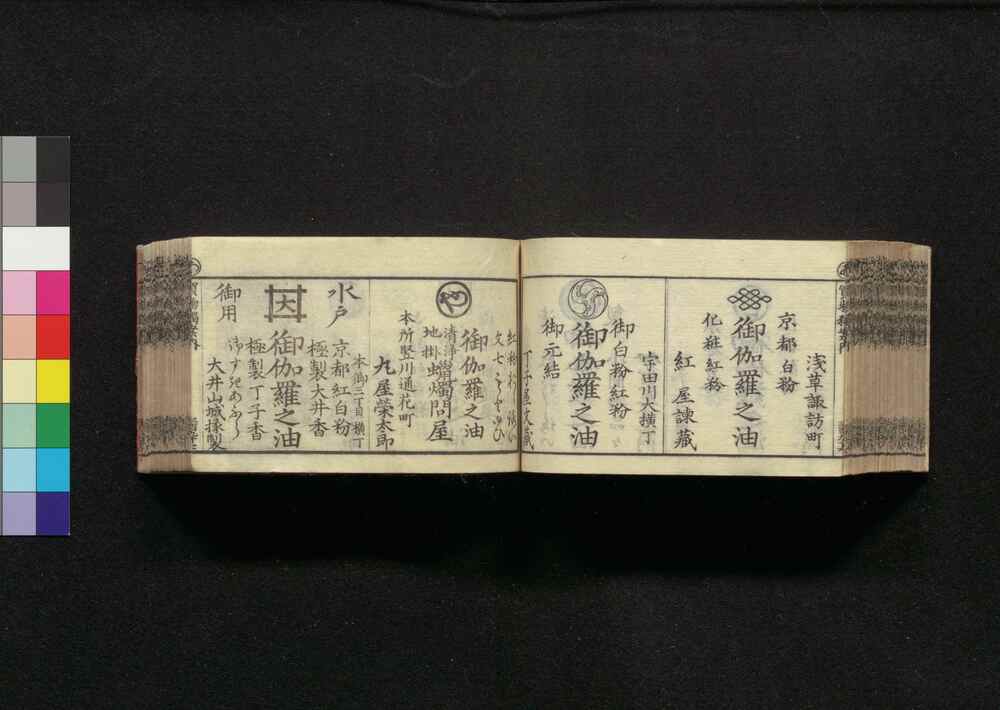 浅草諏訪町
京都白粉
御伽羅之油
化粧紅粉
紅屋諫蔵
宇田川大横丁
御白粉紅粉
御伽羅之油
御元結
御伽羅之油
清浄
地掛蝋燭問屋
本所竪川通花町
九屋榮太郎
本郷三丁目横丁
水戸
京都紅白粉
極製大井香
因
御伽羅之油
極製丁子香
御用
大井山城掾製